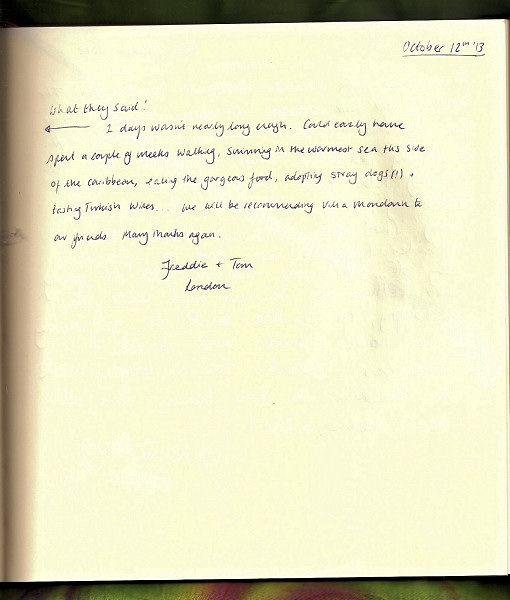 October 12th '13
What they said!
← 2 days wasn't nearly long enough. Could easily have
spent a couple of weeks walking, swimming in the warmest sea this side
of the Caribbean, eating the gorgeous food, adopting stray dogs(!) +
tasting Turkish wines... We will be recommending Villa Mandarin to
our friends Many thanks again.
Freddie + Tom
London